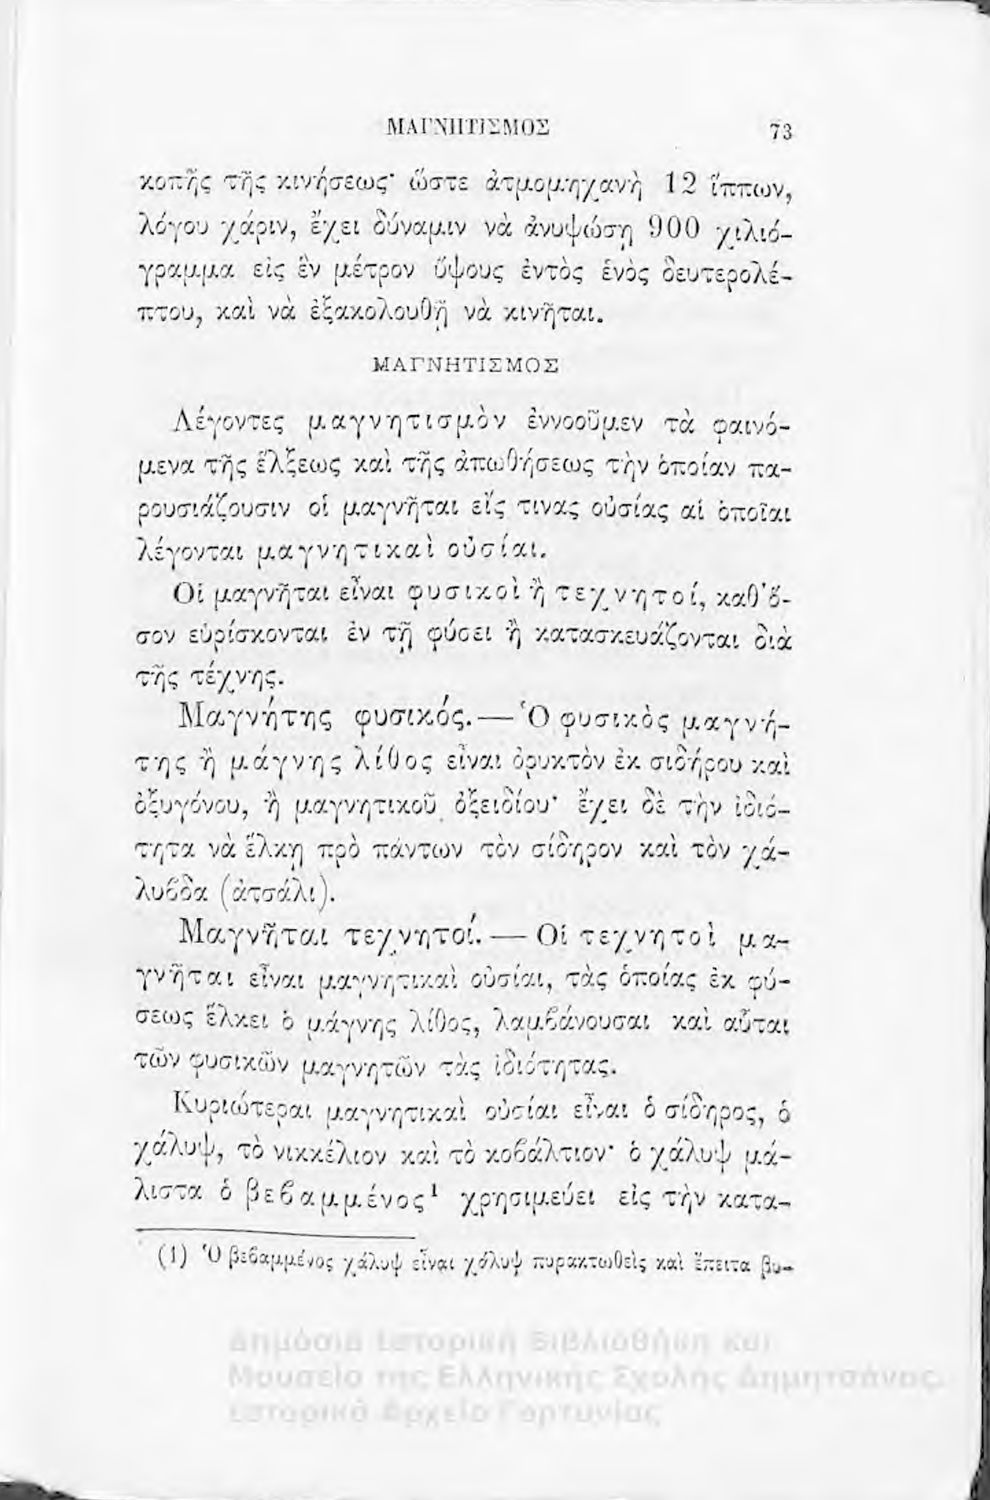 ΜΑΓΝΗΤΙΣΜΟΣ 73
κοπῆς τῆς κινήσεως· ὥστε ἀτμομηχανὴ 12 ἵππων,
λόγου χάριν, ἔχει δύναμιν νὰ ἀνυψώσῃ 900 χιλιό-
γραμμα εἰς ἓν μέτρον ὕψους ἐντὸς ἑνὸς δευτερολέ-
πτου, καὶ νὰ ἐξακολουθῇ νὰ κινῆται.
ΜΑΓΝΗΤΙΣΜΟΣ
Λέγοντες μαγνητισμὸν ἐννοοῦμεν τὰ φαινό-
μενα τῆς ἕλξεως καὶ τῆς ἀπωθήσεως τὴν ὁποίαν πα-
ρουσιάζουσιν οἱ μαγνῆται εἴς τινας οὐσίας αἱ ὁποῖαι
λέγονται μαγνητικαὶ οὐσίαι.
Οἱ μαγνῆται εἶναι φυσικοὶ ἢ τεχνητοί, καθ'ὅ-
σον εὑρίσκονται ἐν τῇ φύσει ἢ κατασκευάζονται διὰ
τῆς τέχνης.
Μαγνήτης φυσικός. — Ὁ φυσικὸς μαγνή-
της ἢ μάγνης λίθος εἶναι ὀρυκτὸν ἐκ σιδήρου καὶ
ὀξυγόνου, ἢ μαγνητικοῦ ὀξειδίου· ἔχει δὲ τὴν ἰδιό-
τητα νὰ ἕλκῃ πρὸ πάντων τὸν σίδηρον καὶ τὸν χά-
λυβδα (ἀτσάλι).
Μαγνῆται τεχνητοί. — Οἱ τεχνητοὶ μα-
γνῆται εἶναι μαγνητικαὶ οὐσίαι, τὰς ὁποίας ἐκ φύ-
σεως ἕλκει ὁ μάγνης λίθος, λαμβάνουσαι καὶ αὗται
τῶν φυσικῶν μαγνητῶν τὰς ἰδιότητας.
Κυριώτεραι μαγνητικαὶ οὐσίαι εἶναι ὁ σίδηρος, ὁ
χάλυψ, τὸ νικκέλιον καὶ τὸ κοβάλτιον· ὁ χάλυψ μά-
λιστα ὁ βεβαμμένος¹ χρησιμεύει εἰς τὴν κατα-
(1) Ὁ βεβαμμένος χάλυψ εἶναι χάλυψ πυρακτωθεὶς καὶ ἔπειτα βυ-
Δημόσια Ιστορική Βιβλιοθήκη και
Μουσείο της Ελληνικής Σχολής Δημητσάνας,
Ιστορικό Αρχείο Γορτυνίας